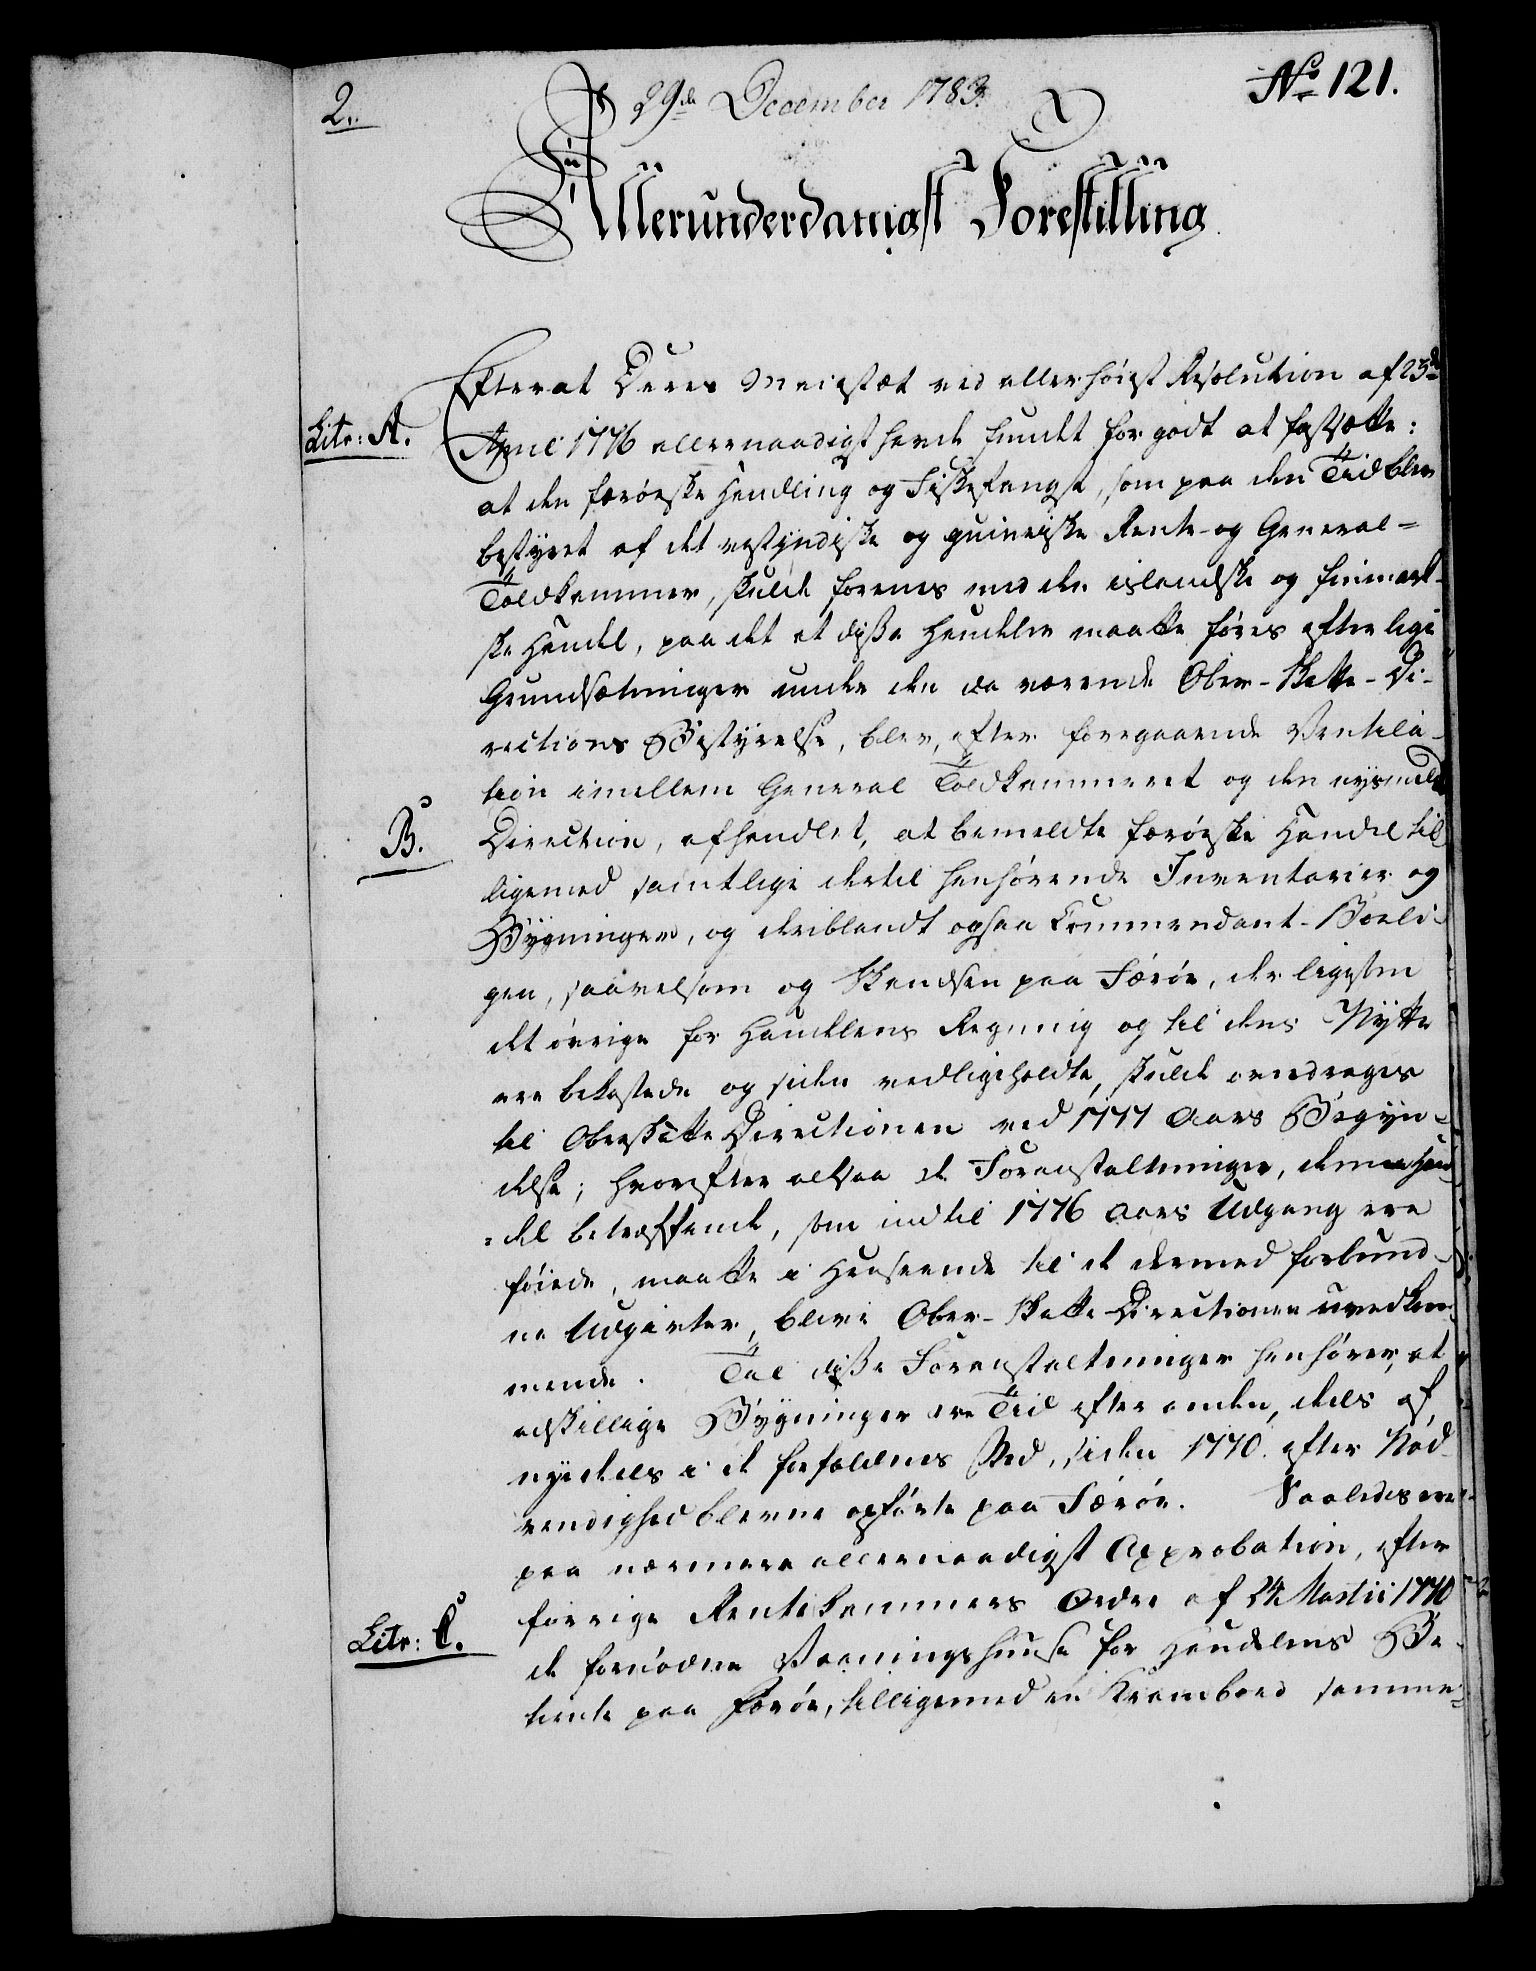 2.
29de December 1783.
No 121.
Allerunderdanigst Forestilling.
Efterat Deres Maiestæt ved allerhöist Resolution af 23de
Litr: A.
April 1776 allernaadigst havde fundet for godt at fastsætte:
at den færöeske Handling og Fiskefangst, som paa den Tid blev
bestyret af det vestjndiske og guineiske Rente- og General-
Toldkammer, skulde forenes med den islandske og finmark-
ske Handel, paa det at disse Handeler maatte föres efter lige
Grundsætninger under den da værende Over-Skatte-Di-
rections Bestyrelse, blev, efter foregaaende Ventila-
tion imellem General Toldkammeret og den nysmeldte
B.
Direction, afhandlet, at bemeldte færöeske Handel til-
ligemed samtlige dertil henhörende Inventarier og
Bygninger, og deriblandt ogsaa Commendant-Boeli-
gen, saavelsom og Skandsen paa Færöe, der ligesom
det övrige for Handelens Regning og til dens Nytte
ere bekostede og siden vedligeholdte, skulde overdrages
til OberskatteDirectionen ved 1777 Aars Begyn-
delse; hvorefter altsaa de Foranstaltninger, denne Han-
del betræffende, som indtil 1776 Aars Udgang ere
föiede, maatte i Henseende til de dermed forbund-
ne Udgivter, blive Ober-Skatte-Directionen uvedkom-
mende. Til disse Foranstaltninger henhörer, at
adskillige Bygninger ere Tid efter anden, deels af
nye deels i de forfaldnes Sted, siden 1770. efter Nöd-
vendighed blevne opförte paa Færöe. Saaledes ere
paa nærmere allernaadigst Approbation, efter
forrige Rentekammers Ordre af 24 Martii 1770
Litr: C.
de fornödne Vaaningshuuse for Handelens Be-
tiente paa Færöe, tilligemed en Kramboed samme-